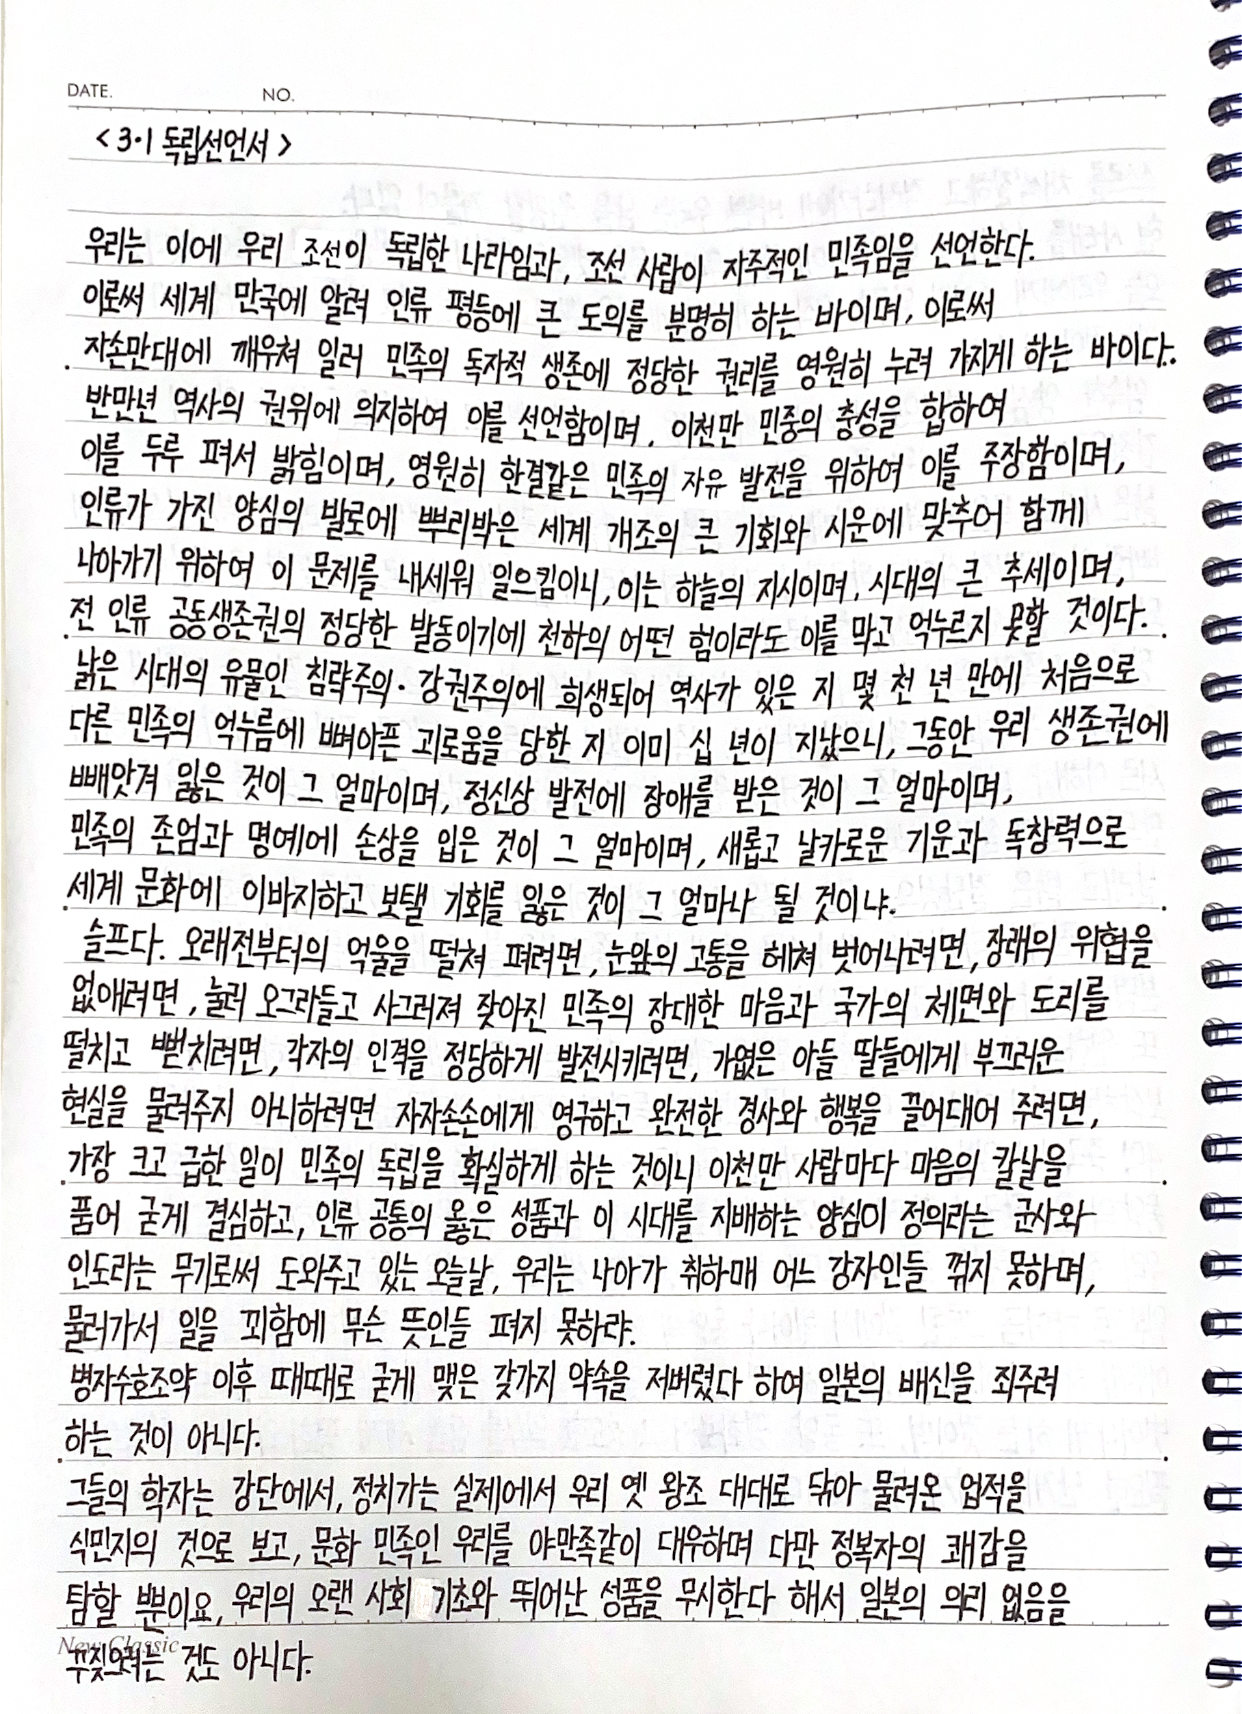 DATE. NO.
<3·1 독립선언서>
우리는 이에 우리 조선이 독립한 나라임과, 조선 사람이 자주적인 민족임을 선언한다.
이로써 세계 만국에 알려 인류 평등에 큰 도의를 분명히 하는 바이며, 이로써
자손만대에 깨우쳐 일러 민족의 독자적 생존에 정당한 권리를 영원히 누려 가지게 하는 바이다.
반만년 역사의 권위에 의지하여 이를 선언함이며, 이천만 민중의 충성을 합하여
이를 두루 펴서 밝힘이며, 영원히 한결같은 민족의 자유 발전을 위하여 이를 주장함이며,
인류가 가진 양심의 발로에 뿌리박은 세계 개조의 큰 기회와 시운에 맞추어 함께
나아가기 위하여 이 문제를 내세워 일으킴이니, 이는 하늘의 지시이며, 시대의 큰 추세이며,
전 인류 공동생존권의 정당한 발동이기에 천하의 어떤 힘이라도 이를 막고 억누르지 못할 것이다.
낡은 시대의 유물인 침략주의·강권주의에 희생되어 역사가 있은 지 몇 천 년 만에 처음으로
다른 민족의 억누름에 뼈아픈 괴로움을 당한 지 이미 십 년이 지났으니, 그동안 우리 생존권에
빼앗겨 잃은 것이 그 얼마이며, 정신상 발전에 장애를 받은 것이 그 얼마이며,
민족의 존엄과 명예에 손상을 입은 것이 그 얼마이며, 새롭고 날카로운 기운과 독창력으로
세계 문화에 이바지하고 보탤 기회를 잃은 것이 그 얼마나 될 것이냐.
슬프다. 오래전부터의 억울을 떨쳐 펴려면, 눈앞의 고통을 헤쳐 벗어나려면, 장래의 위협을
없애려면, 눌러 오그라들고 사그러져 잦아진 민족의 장대한 마음과 국가의 체면와 도리를
떨치고 뻗치려면, 각자의 인격을 정당하게 발전시키려면, 가엾은 아들 딸들에게 부끄러운
현실을 물려주지 아니하려면 자자손손에게 영구하고 완전한 경사와 행복을 끌어대어 주려면,
가장 크고 급한 일이 민족의 독립을 확실하게 하는 것이니 이천만 사람마다 마음의 칼날을
품어 굳게 결심하고, 인류 공통의 옳은 성품과 이 시대를 지배하는 양심이 정의라는 군사와
인도라는 무기로써 도와주고 있는 오늘날, 우리는 나아가 취하매 어느 강자인들 꺾지 못하며,
물러가서 일을 꾀함에 무슨 뜻인들 펴지 못하랴.
병자수호조약 이후 때때로 굳게 맺은 갖가지 약속을 저버렸다 하여 일본의 배신을 죄주려
하는 것이 아니다.
그들의 학자는 강단에서, 정치가는 실제에서 우리 옛 왕조 대대로 닦아 물려온 업적을
식민지의 것으로 보고, 문화 민족인 우리를 야만족같이 대우하며 다만 정복자의 쾌감을
탐할 뿐이요, 우리의 오랜 사회 기초와 뛰어난 성품을 무시한다 해서 일본의 의리 없음을
New Classic
꾸짖으려는 것도 아니다.